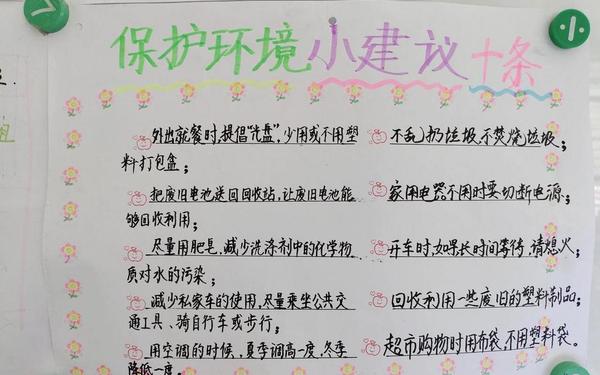 保护环境小建议十条
外出就餐时,提倡“光盘”,少用或不用塑
料打包盒;
把废旧电池送回回收站,让废旧电池能
够回收利用;
尽量用肥皂,减少洗涤剂中的化学物
质对水的污染;
减少私家车的使用,尽量乘坐公共交
通工具、骑自行车或步行;
用空调的时候,夏季调高一度,冬季
降低一度。
不乱扔垃圾,不焚烧垃圾;
家用电器不用时要切断电源;
开车时,如果长时间等待,请熄火;
回收利用一些废旧的塑料制品;
超市购物时用布袋,不用塑料袋。